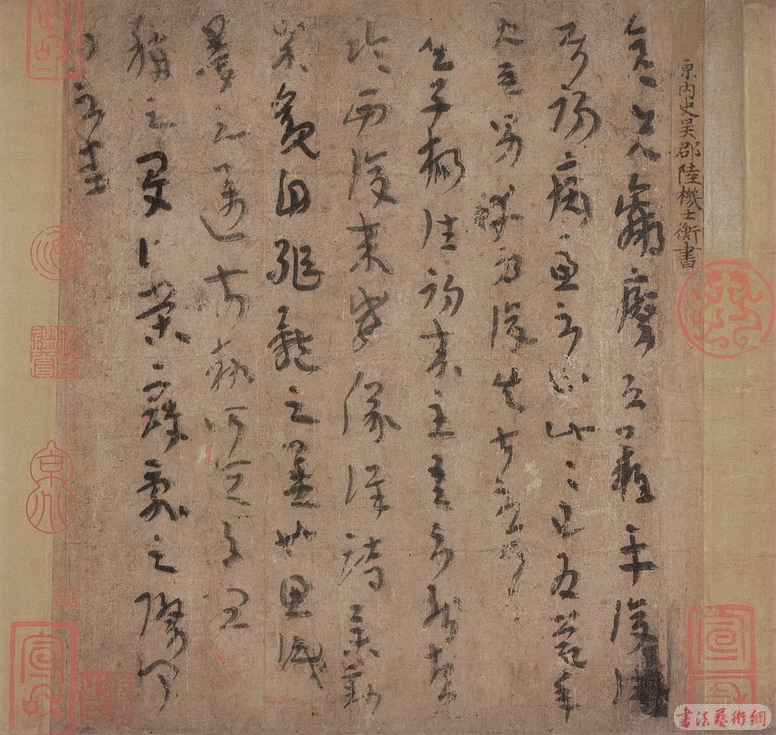 原內史吳郡陸機士衡書
彦先羸瘵恐難平復往
屬初病慮不止此此已為慶承
使唯男幸為復失前憂耳
吳子楊往初來主吾不能盡
臨西復來威儀詳跱舉動
成觀自軀體之美也思識
量之邁前執所恒有宜
稱之夏伯榮寇亂之際聞
問不悉
宣和
宣和
書法藝術網